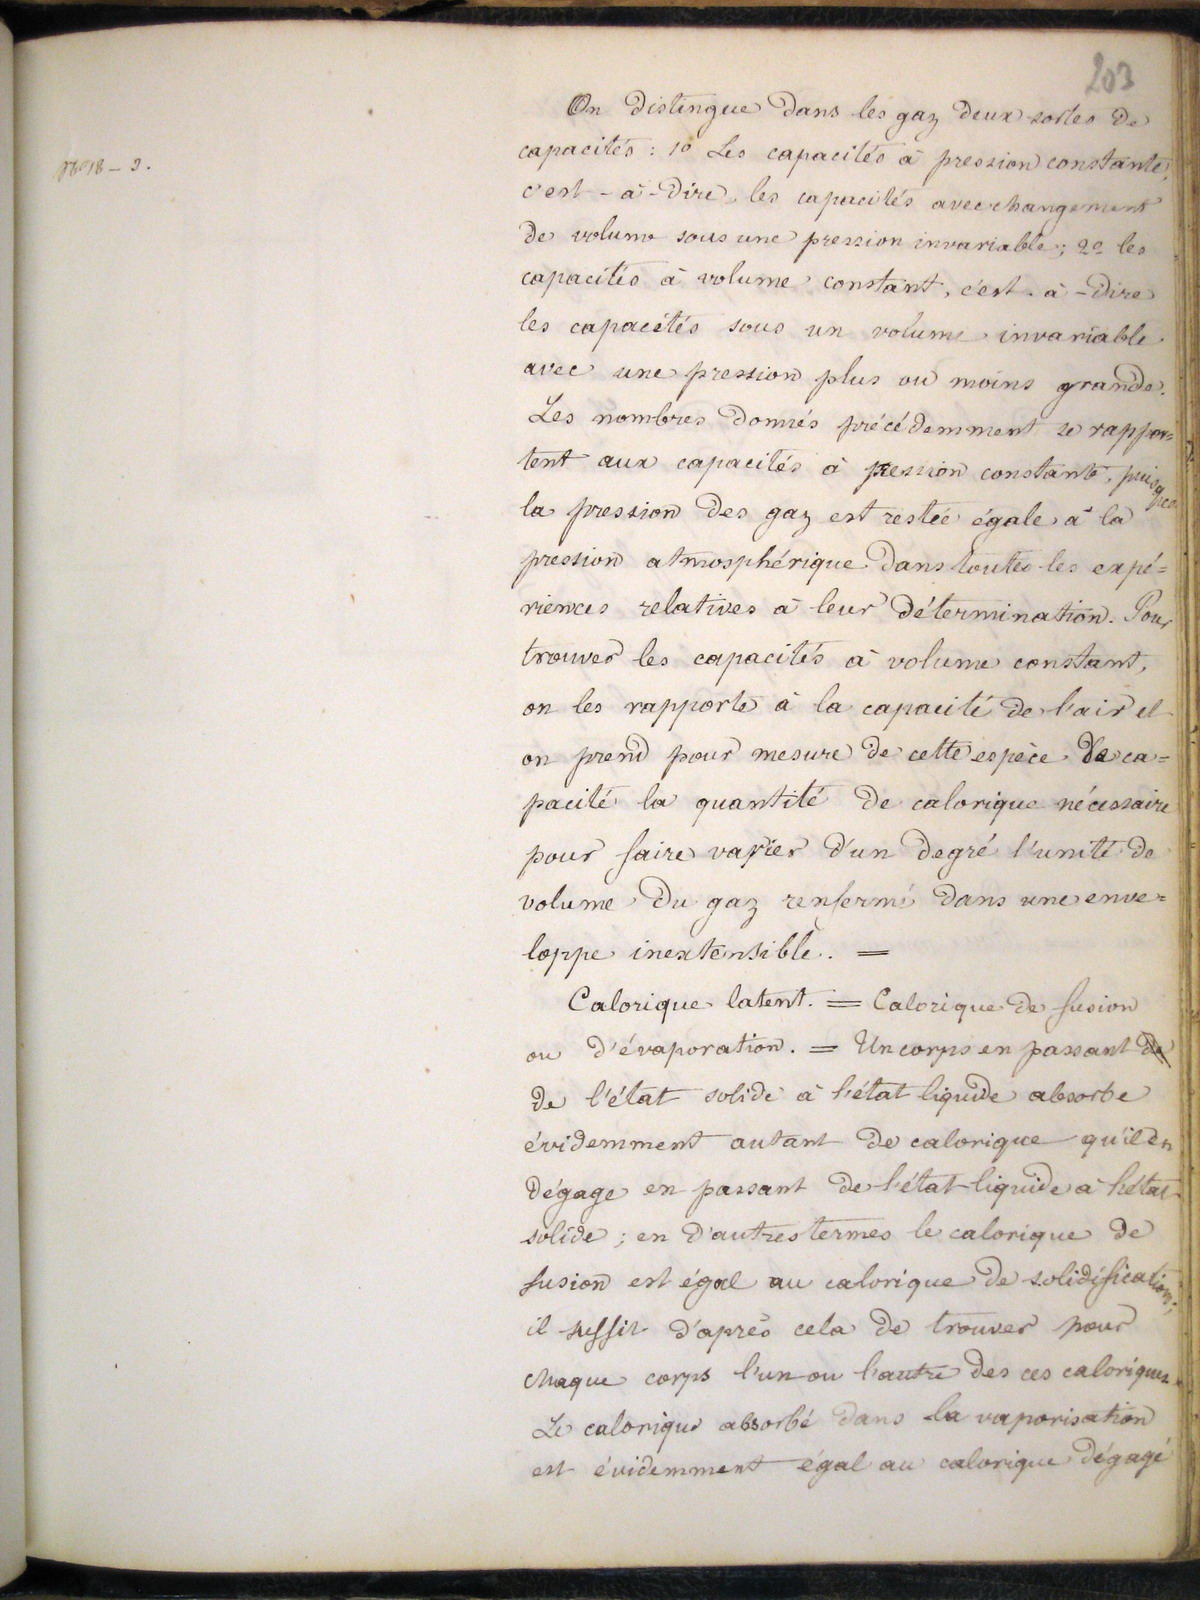 203
On distingue dans les gaz deux sortes de
capacités : 1º Les capacités à pression constante,
c'est-à-dire, les capacités avec changement
de volume sous une pression invariable ; 2º les
capacités à volume constant, c'est-à-dire
les capacités sous un volume invariable
avec une pression plus ou moins grande.
Les nombres donnés précédemment se rappor=
tent aux capacités à pression constante, puisque
la pression des gaz est restée égale à la
pression atmosphérique dans toutes les expé=
riences relatives à leur détermination. Pour
trouver les capacités à volume constant,
on les rapporte à la capacité de l'air et
on prend pour mesure de cette espèce de ca=
pacité la quantité de calorique nécessaire
pour faire varier d'un degré l'unité de
volume du gaz renfermé dans une enve=
loppe inextensible. =
Calorique latent. = Calorique de fusion
ou d'évaporation. = Un corps en passant de
de l'état solide à l'état liquide absorbe
évidemment autant de calorique qu'il en
dégage en passant de l'état liquide à l'état
solide ; en d'autres termes le calorique de
fusion est égal au calorique de solidification ;
il suffit d'après cela de trouver pour
chaque corps l'un ou l'autre des ces caloriques.
Le calorique absorbé dans la vaporisation
est évidemment égal au calorique dégagé